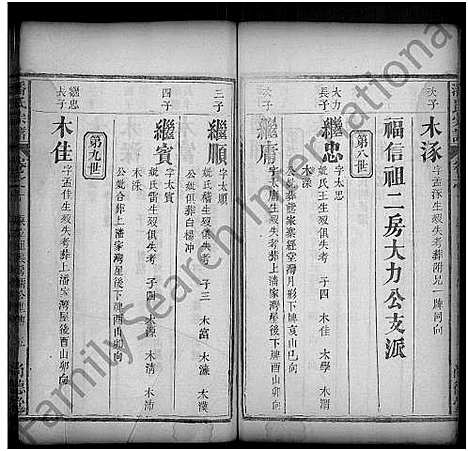 次子
木涿
字孟涿生歿失考葬附兄一陣同向
福信祖二房大力公支派
第八世
大力
長子
繼忠
字太忠
妣氏王生歿俱失考 子四 木佳 木學 木渭
木洙
公妣葬譚家寨經堂灣月形下牌亥山巳向
次子
繼庸
字太庸
三子
繼順
字太順
妣氏蒋生歿俱失考 子三 木富 木濂 木濮
公妣俱葬白楊冲
四子
繼賓
字太賓
妣氏雷生歿俱失考 子四 木涑 木清 木沛
木溁
公妣合葬上潘家灣屋後下牌酉山卯向
第九世
繼忠
長子
木佳
字孟佳生歿失考葬上潘家灣屋後酉山卯向
潘氏宗譜
尚德堂
FamilySearch International